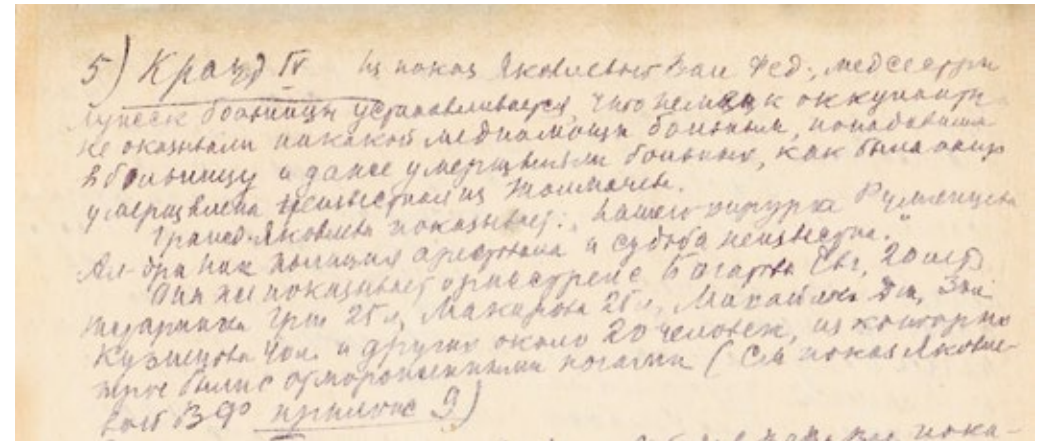 5) Кранд IV Из показ Яковлевой Вал Фед., медсестры
больницы устанавливается, что немецк оккупанты
не оказывали никакой медпомощи больным, попадавшим
в больницу и даже умерщвляли больных, как была
умерщвлена неизвестная из Толмачева.
Яковлева показывает: "нашего хирурга Румянцева
Ал-дра Ник полиция арестовала и судьба неизвестна."
Она же показывает о расстреле Богарова Евг, 20 лет
25 л, Макарова 25 л, Дм, Зои
Кузнецова и других около 20 человек, из которых
трое были с отмороженными ногами (См показ Яковле-
вой ВФ прилож 9)
пока-